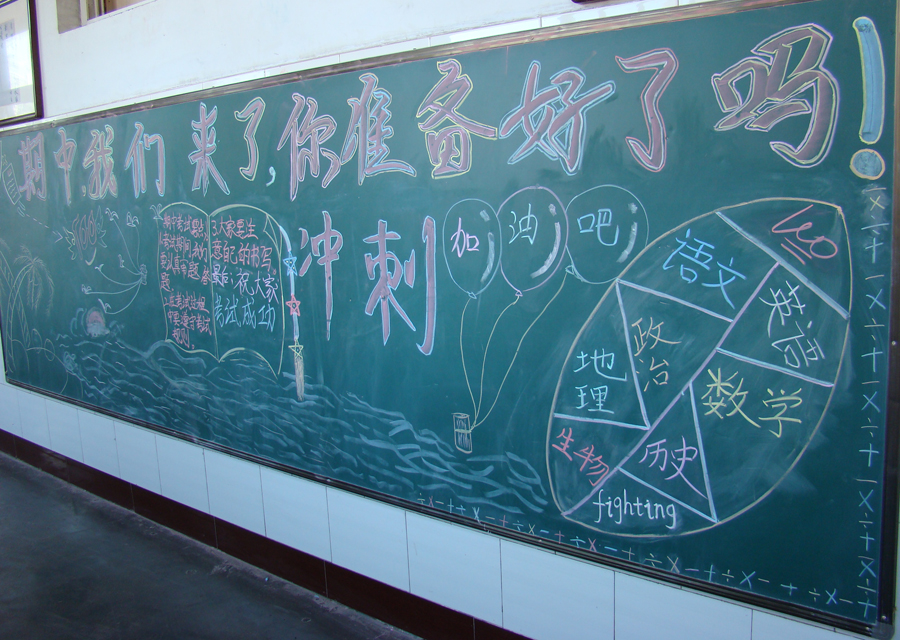 期中,我们来了,你准备好了吗!
100
期中考试要
3.大家要注
意自己的书写。
最后:祝大家
考试成功
冲刺
加油吧
语文
英语
政治
地理
数学
历史
生物
fighting